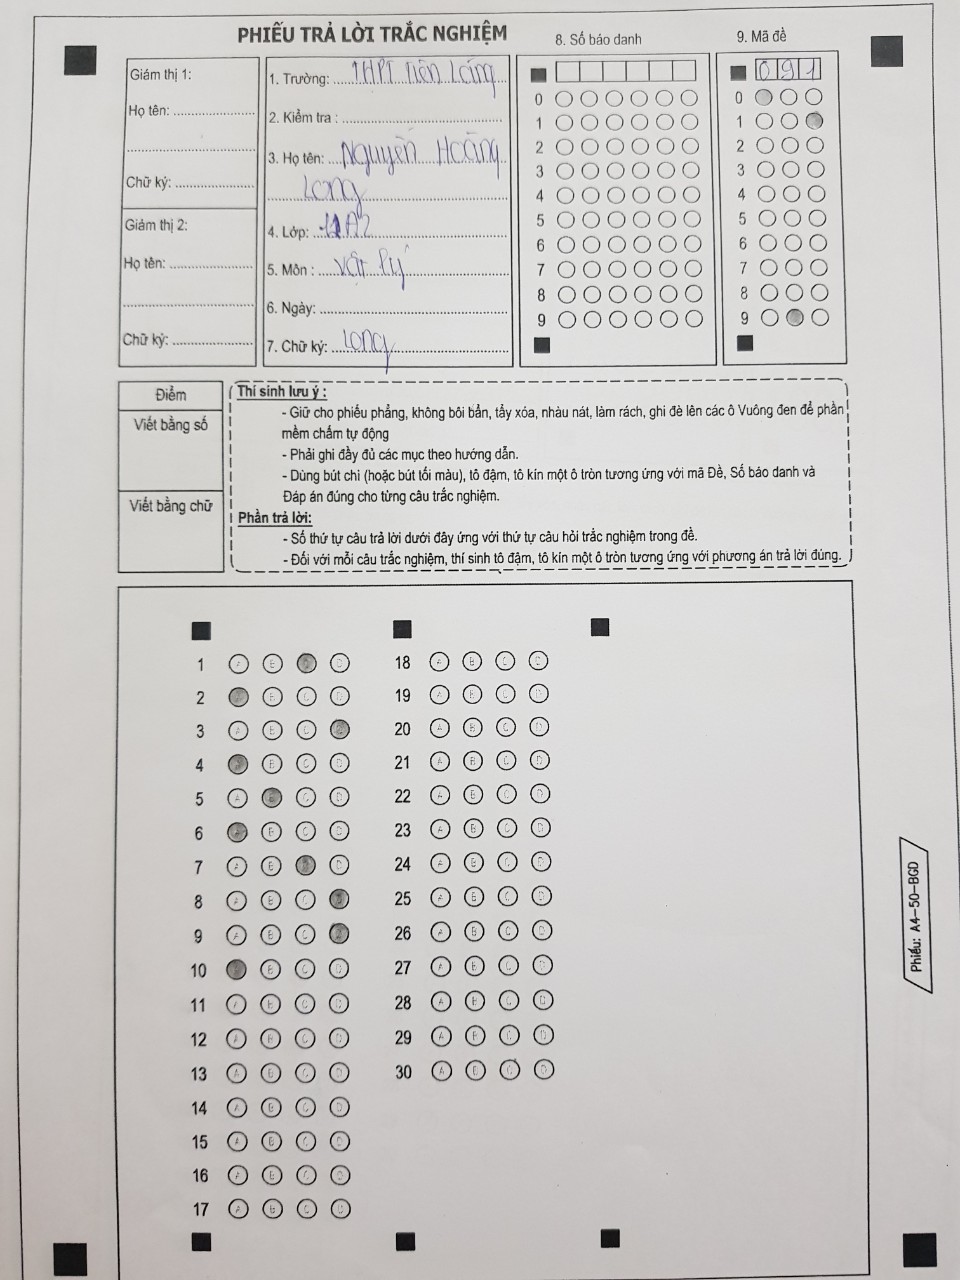 PHIẾU TRẢ LỜI TRẮC NGHIỆM
8. Số báo danh
9. Mã đề
Giám thị 1:
Họ tên:
Chữ ký:
Giám thị 2:
Họ tên:
Chữ ký:
1. Trường: THPT Tiên Lãng
2. Kiểm tra :
3. Họ tên: Nguyễn Hoàng
Long
4. Lớp: 11A2
5. Môn : Vật lý
6. Ngày:
7. Chữ ký: Long
0 9 1
0 0
1 1
2 2
3 3
4 4
5 5
6 6
7 7
8 8
9 9
Điểm
Viết bằng số
Viết bằng chữ
Thí sinh lưu ý :
- Giữ cho phiếu phẳng, không bôi bẩn, tẩy xóa, nhàu nát, làm rách, ghi đè lên các ô Vuông đen để phần
mềm chấm tự động
- Phải ghi đầy đủ các mục theo hướng dẫn.
- Dùng bút chì (hoặc bút tối màu), tô đậm, tô kín một ô tròn tương ứng với mã Đề, Số báo danh và
Đáp án đúng cho từng câu trắc nghiệm.
Phần trả lời:
- Số thứ tự câu trả lời dưới đây ứng với thứ tự câu hỏi trắc nghiệm trong đề.
- Đối với mỗi câu trắc nghiệm, thí sinh tô đậm, tô kín một ô tròn tương ứng với phương án trả lời đúng.
1 A B D
2 B C D
3 A B C
4 B C D
5 A C D
6 B C D
7 A B D
8 A B C
9 A B C
10 B C D
11 A B C D
12 A B C D
13 A B C D
14 A B C D
15 A B C D
16 A B C D
17 A B C D
18 A B C D
19 A B C D
20 A B C D
21 A B C D
22 A B C D
23 A B C D
24 A B C D
25 A B C D
26 A B C D
27 A B C D
28 A B C D
29 A B C D
30 A B C D
Phiếu: A4-50-BGD